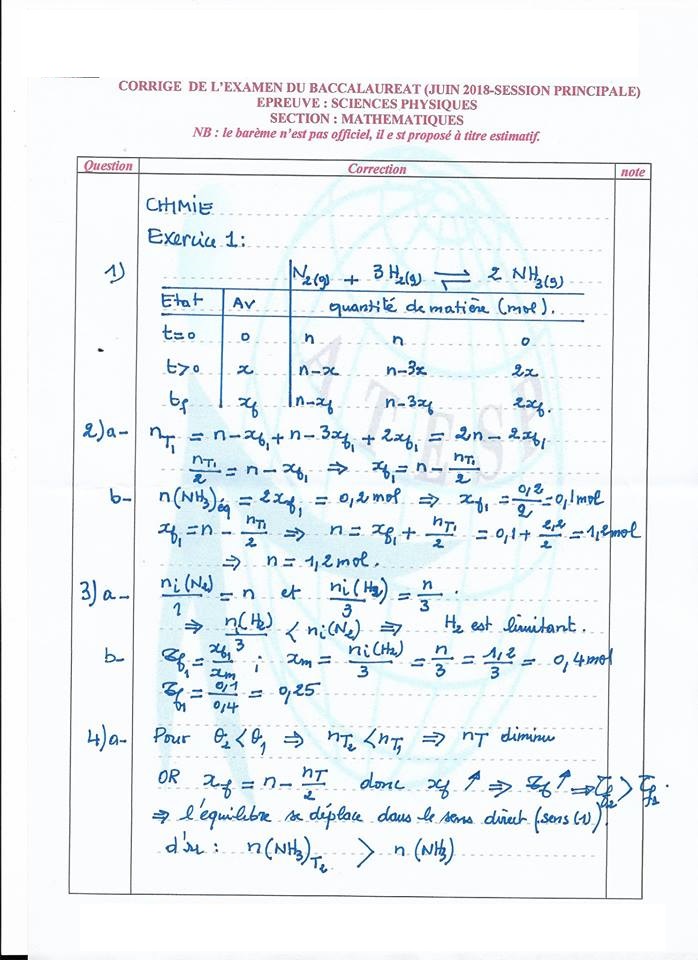 CORRIGE DE L'EXAMEN DU BACCALAUREAT (JUIN 2018-SESSION PRINCIPALE)
EPREUVE : SCIENCES PHYSIQUES
SECTION : MATHEMATIQUES
NB : le barème n'est pas officiel, il e st proposé à titre estimatif.
Question Correction note
CHIMIE
Exercice 1:
1) N₂(g) + 3H₂(g) ⇌ 2 NH₃(g)
Etat Av quantité de matière (mol).
t=0 0 n n 0
t>0 x n-x n-3x 2x
tf xf n-xf n-3xf 2xf.
2)a- nT₁ = n-xf₁+n-3xf₁+2xf₁ = 2n-2xf₁
nT₁/2 = n-xf₁ ⇒ xf₁ = n - nT₁/2
b- n(NH₃)éq = 2xf₁ = 0,2 mol ⇒ xf₁ = 0,2/2 = 0,1mol
xf₁ = n - nT₁/2 ⇒ n = xf₁ + nT₁/2 = 0,1 + 2,2/2 = 1,2mol
⇒ n = 1,2 mol.
3)a- ni(N₂)/1 = n et ni(H₂)/3 = n/3 .
⇒ ni(H₂)/3 < ni(N₂) ⇒ H₂ est limitant.
b- τf₁ = xf₁/xm ; xm = ni(H₂)/3 = n/3 = 1,2/3 = 0,4mol
τf₁ = 0,1/0,4 = 0,25
4)a- Pour θ₂ < θ₁ ⇒ nT₂ < nT₁ ⇒ nT diminu
OR xf = n - nT/2 donc xf ↑ ⇒ τf ↑ ⇒ τf₂ > τf₁.
⇒ l'équilibre se déplace dans le sens direct (sens (1)).
d'où : n(NH₃)T₂ > n(NH₃)
ATESP